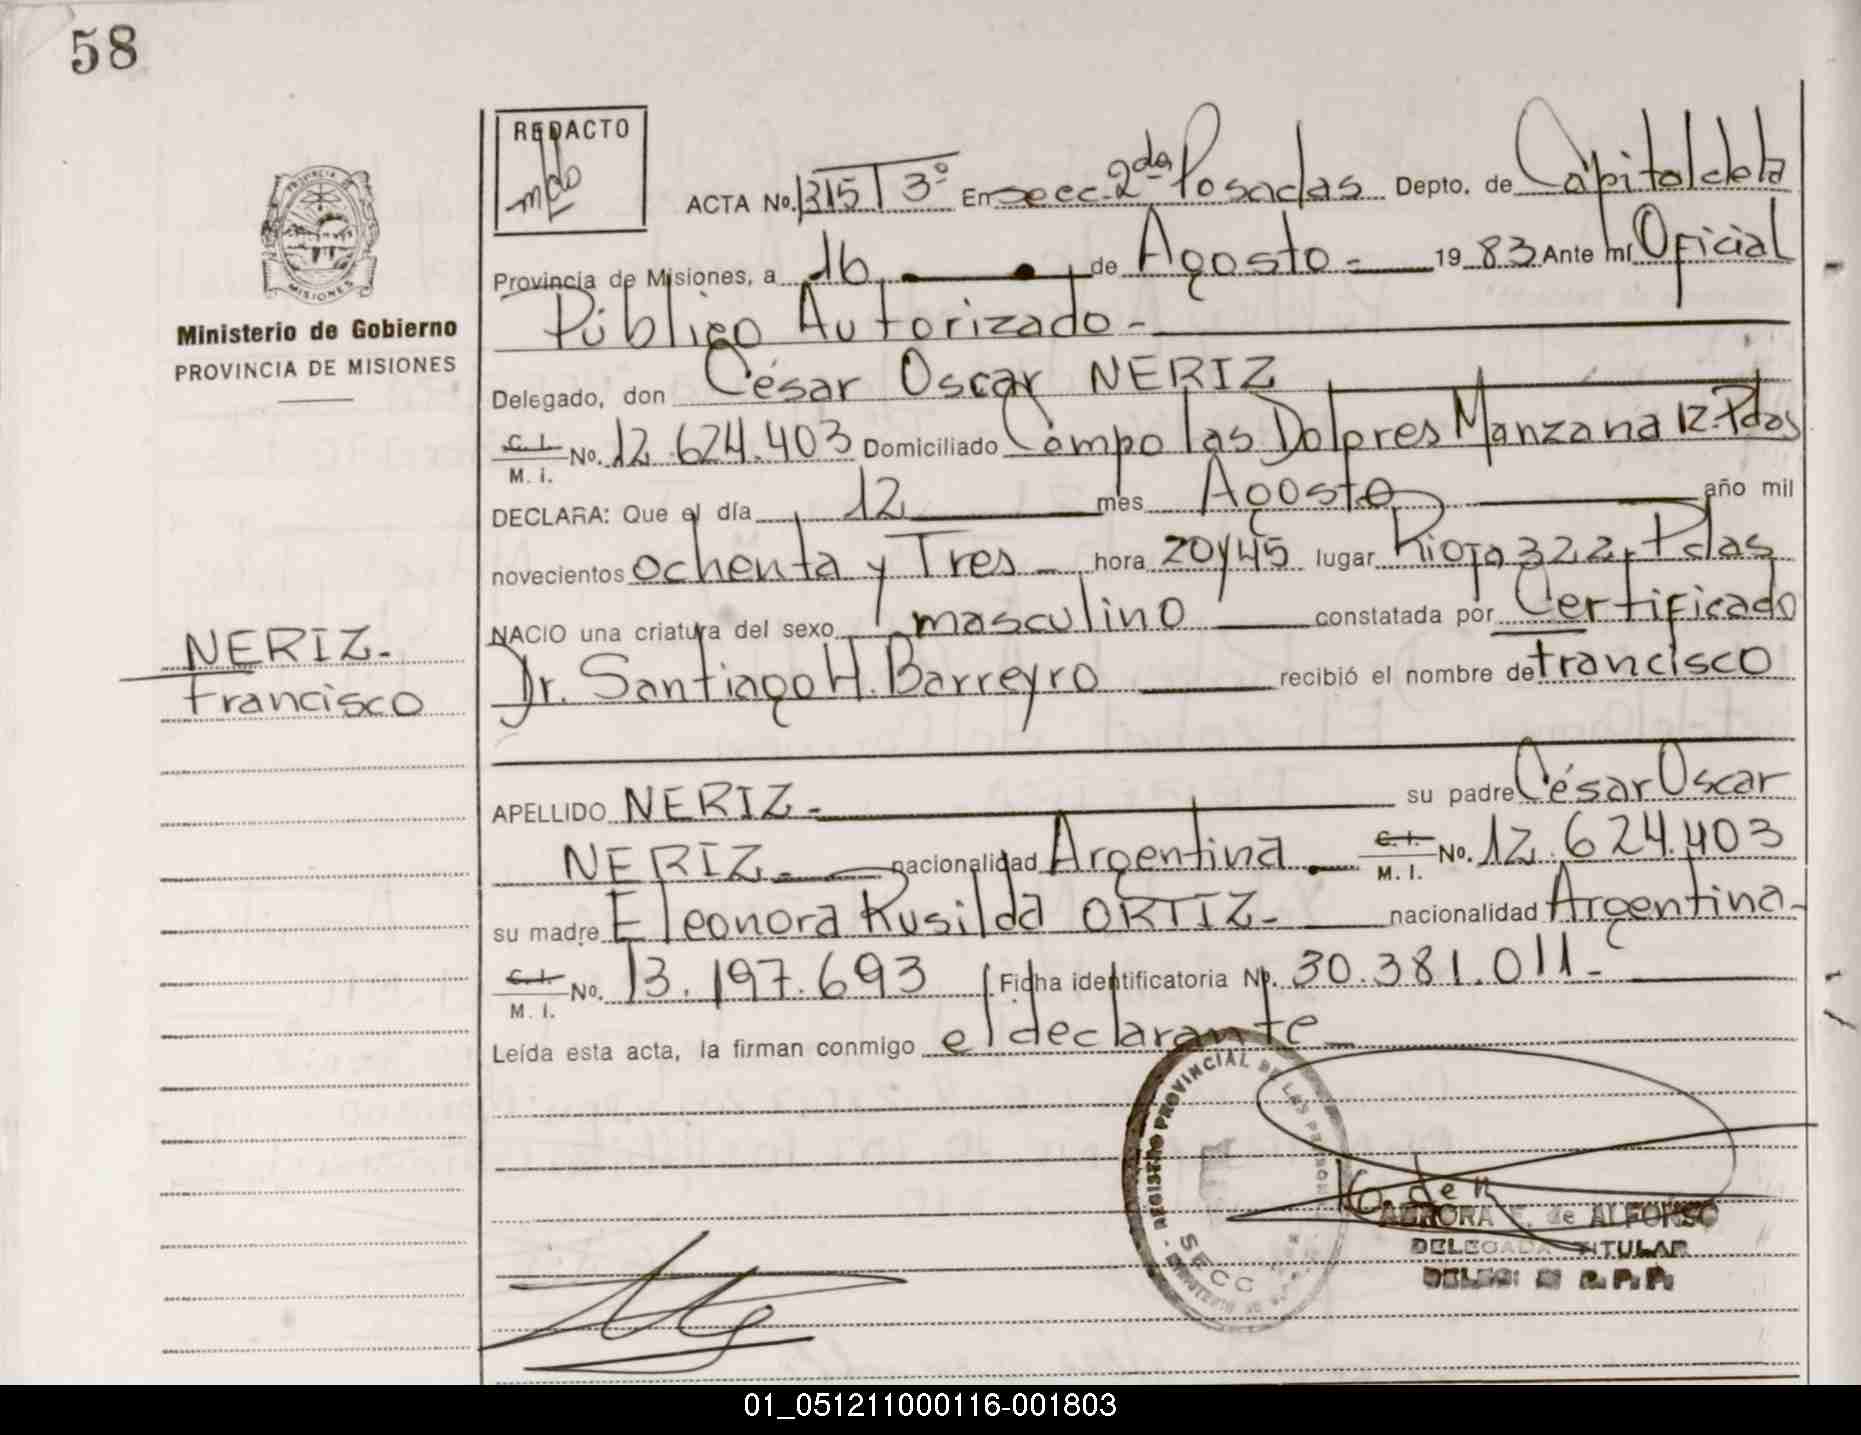 58
REDACTO
PROVINCIA DE
MISIONES
Ministerio de Gobierno
PROVINCIA DE MISIONES
ACTA No. 1315 T 3º En secc. 2da Posadas Depto. de Capital de la
Provincia de Misiones, a 16 de Agosto - 1983 Ante mí Oficial
Público Autorizado -
Delegado, don César Oscar NERIZ
C. I. M. I. No. 12.624.403 Domiciliado Campo las Dolores Manzana 12 - Pdas
DECLARA: Que el día 12 mes Agosto año mil
novecientos ochenta y Tres - hora 20 y 45 lugar Rioja 322, Pdas
NACIO una criatura del sexo masculino constatada por Certificado
Dr. Santiago H. Barreyro recibió el nombre de Francisco
NERIZ -
Francisco
APELLIDO NERIZ - su padre César Oscar
NERIZ - nacionalidad Argentina - C. I. M. I. No. 12.624.403
su madre Eleonora Rusilda ORTIZ - nacionalidad Argentina -
C. I. M. I. No. 13.197.693 Ficha identificatoria No. 30.381.011 -
Leída esta acta, la firman conmigo el declarante -
REGISTRO PROVINCIAL DE LAS PERSONAS
SECC
AURORA de ALFONSO
DELEGADA TITULAR
R. P. P.
01_051211000116-001803